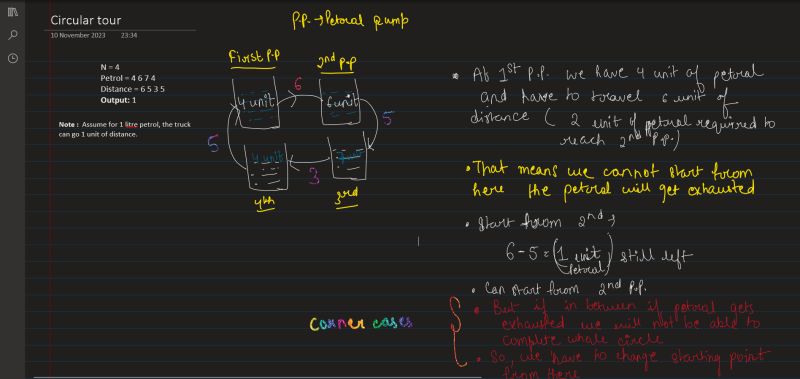 Circular tour
10 November 2023 23:34
P.P. → Petoral pump
N = 4
Petrol = 4 6 7 4
Distance = 6 5 3 5
Output: 1
Note : Assume for 1 litre petrol, the truck
can go 1 unit of distance.
First P.P
2nd P.P
6
4 unit
6 unit
5
5
4 unit
3
4th
3rd
• At 1st P.P. we have 4 unit of petoral
and have to travel 6 unit of
distance ( 2 unit of petoral required to
reach 2nd P.P.)
• That means we cannot start from
here the petoral will get exhausted
• Start from 2nd →
6-5 = (1 unit) still left
petoral
• Can start from 2nd P.P.
• But if in between if petoral gets
exhausted we will not be able to
complete whole circle
• So, we have to change starting point
from there
corner cases